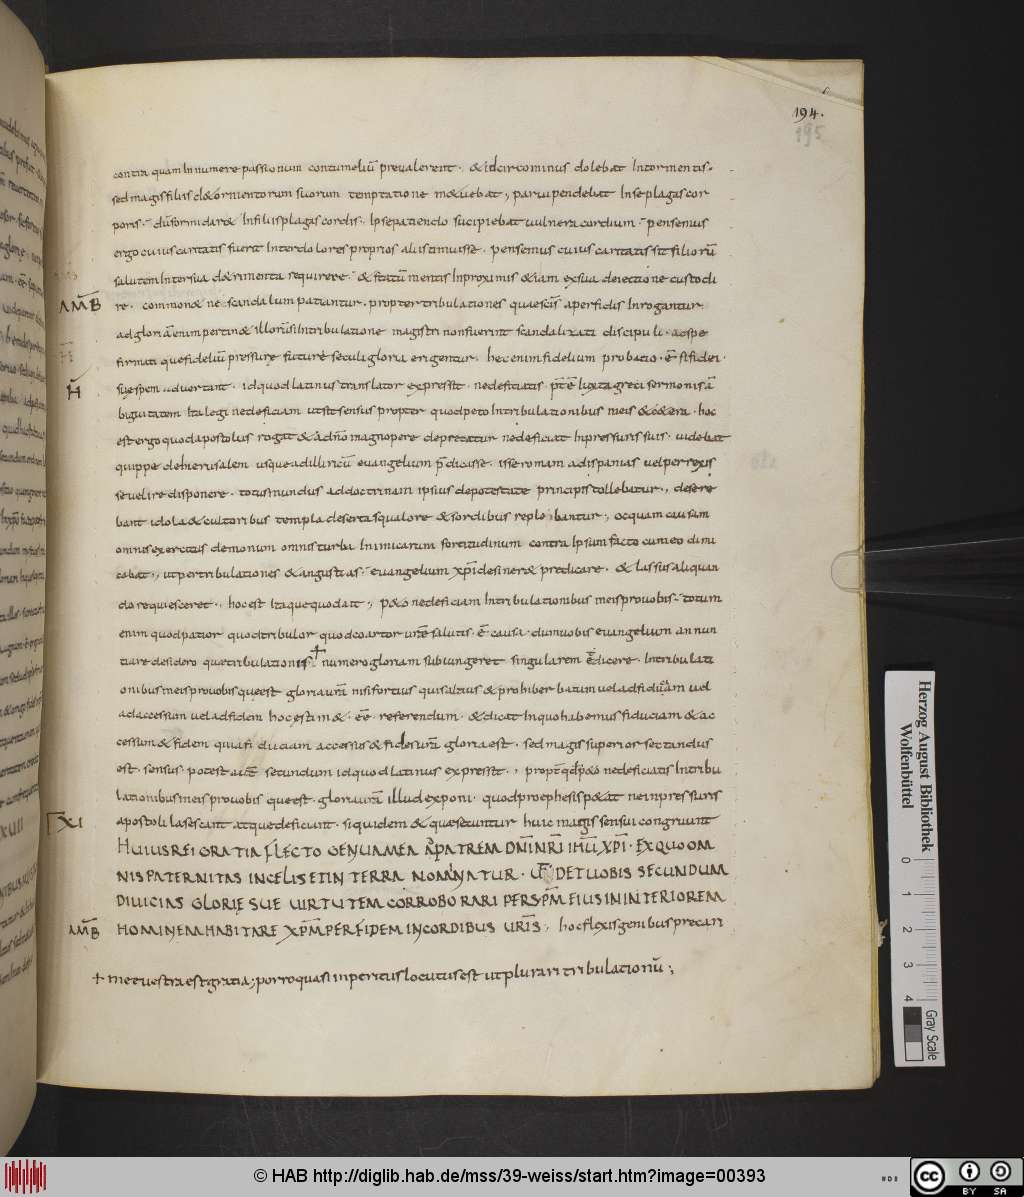 194.
195
contra quam Innumere passionum contumeliū prevalerent · & idcirco minus dolebat Intormentis ·
sed magis filiis d&ormentorum suorum temptatione m&uebat ; parvi pendebat Inse plagas cor
poris · dū formidar& Infiliis plagas cordis · Ipse patiendo suscipiebat vulnera cordium · pensemus
ergo cuius caritatis fuerit Inter dolores proprios alios timuisse · pensemus cuius caritatis sit filiorū
salutem Inter sua d&rimenta requirere · & statū mentis Inproximis &iam exsua deiectione custodi
AM̄B re · common& ne scandalum patiantur · propter tribulationes quae sc̄īs aperfidis Inrogantur
ad gloriā enim pertin& illorū si Intribulatione magistri nonfuerint scandalizati discipuli · ac spe
firmati que fidelium pressure future seculi gloria erigentur · hec enim fidelium probatio · ē si fidei ·
H̄ sue spem advertant · id quod latinus translator expressit · ne deficiatis · pt̄ē Iuxta greci sermonis ā
biguitatem Ita legi ne deficiam ut sit sensus propter quod peto Intribulationibus meis &c&era · hoc
est ergo quod apostolus rogat & a dn̄o magnopere deprecatur ne deficiat Inpressuris suis · videbat
quippe de hierusalem usque ad illiricū euangelium p̄dicasse · isse romam ad ispanias vel perrexis
se vel ire disponere · totus mundus ad doctrinam ipsius de potestate principis tollebatur ; desere
bant idola & cultoribus templa deserta squalore & sordibus replebantur ; oc quam causam
omnis exercitus demonum omnis turba Inimicarum fortitudinum contra Ipsum facto cuneo dimi
cabat ; ut per tribulationes & angustias · euangelium xp̄i desiner& predicare · & lassus aliquan
do requiesceret · hoc est Itaque quod ait ; p&o ne deficiam Intribulationibus meis pro vobis · totum
enim quod patior quod tribulor quod coartor urē salutis · ē causa · dum vobis euangelium annun
tiare desidero quae tribulationis + numero gloriam subiungeret singularem ēē dicere · Intribulati
onibus meis pro vobis que est gloria urā nisi fortius quis altius & prohiber batum vel ad fiduciam vel
ad accessum vel ad fidem hoc est in &· ēē· referendum · & dicat Inquo habemus fiduciam & ac
cessum & fidem quasi fiduciam accessus & fides urā gloria est · sed magis superior sectandus
est · sensus · potest autē secundum id quod latinus expressit · propt̄ qd p&o ne deficiatis Intribu
lationibus meis pro vobis que est · gloria urā illud exponi · quod pro ephesis p&at ne in pressuris
XI apostoli lasescant atque deficiunt · siquidem & quae secuntur huic magis sensui congruunt
HUIUS REI GRATIA FLECTO GENUA MEA AD PATREM DN̄I NR̄I IH̄U XP̄I · EX QUO OM
NIS PATERNITAS IN CELIS ET IN TERRA NOMINATUR · UT DET UOBIS SECUNDUM
DIUICIAS GLORIĘ SUE UIRTUTEM CORROBORARI PER SP̄M EIUS IN INTERIOREM
AM̄B HOMINEM HABITARE XP̄M PER FIDEM IN CORDIBUS UR̄IS ; hoc flexis genibus precari
+ ne vestra est gratia ; porro quasi inperitus locutus est ut plurari tribulationū ;
Herzog August Bibliothek
Wolfenbüttel
0 1 2 3 4
Gray Scale
© HAB http://diglib.hab.de/mss/39-weiss/start.htm?image=00393
cc BY SA